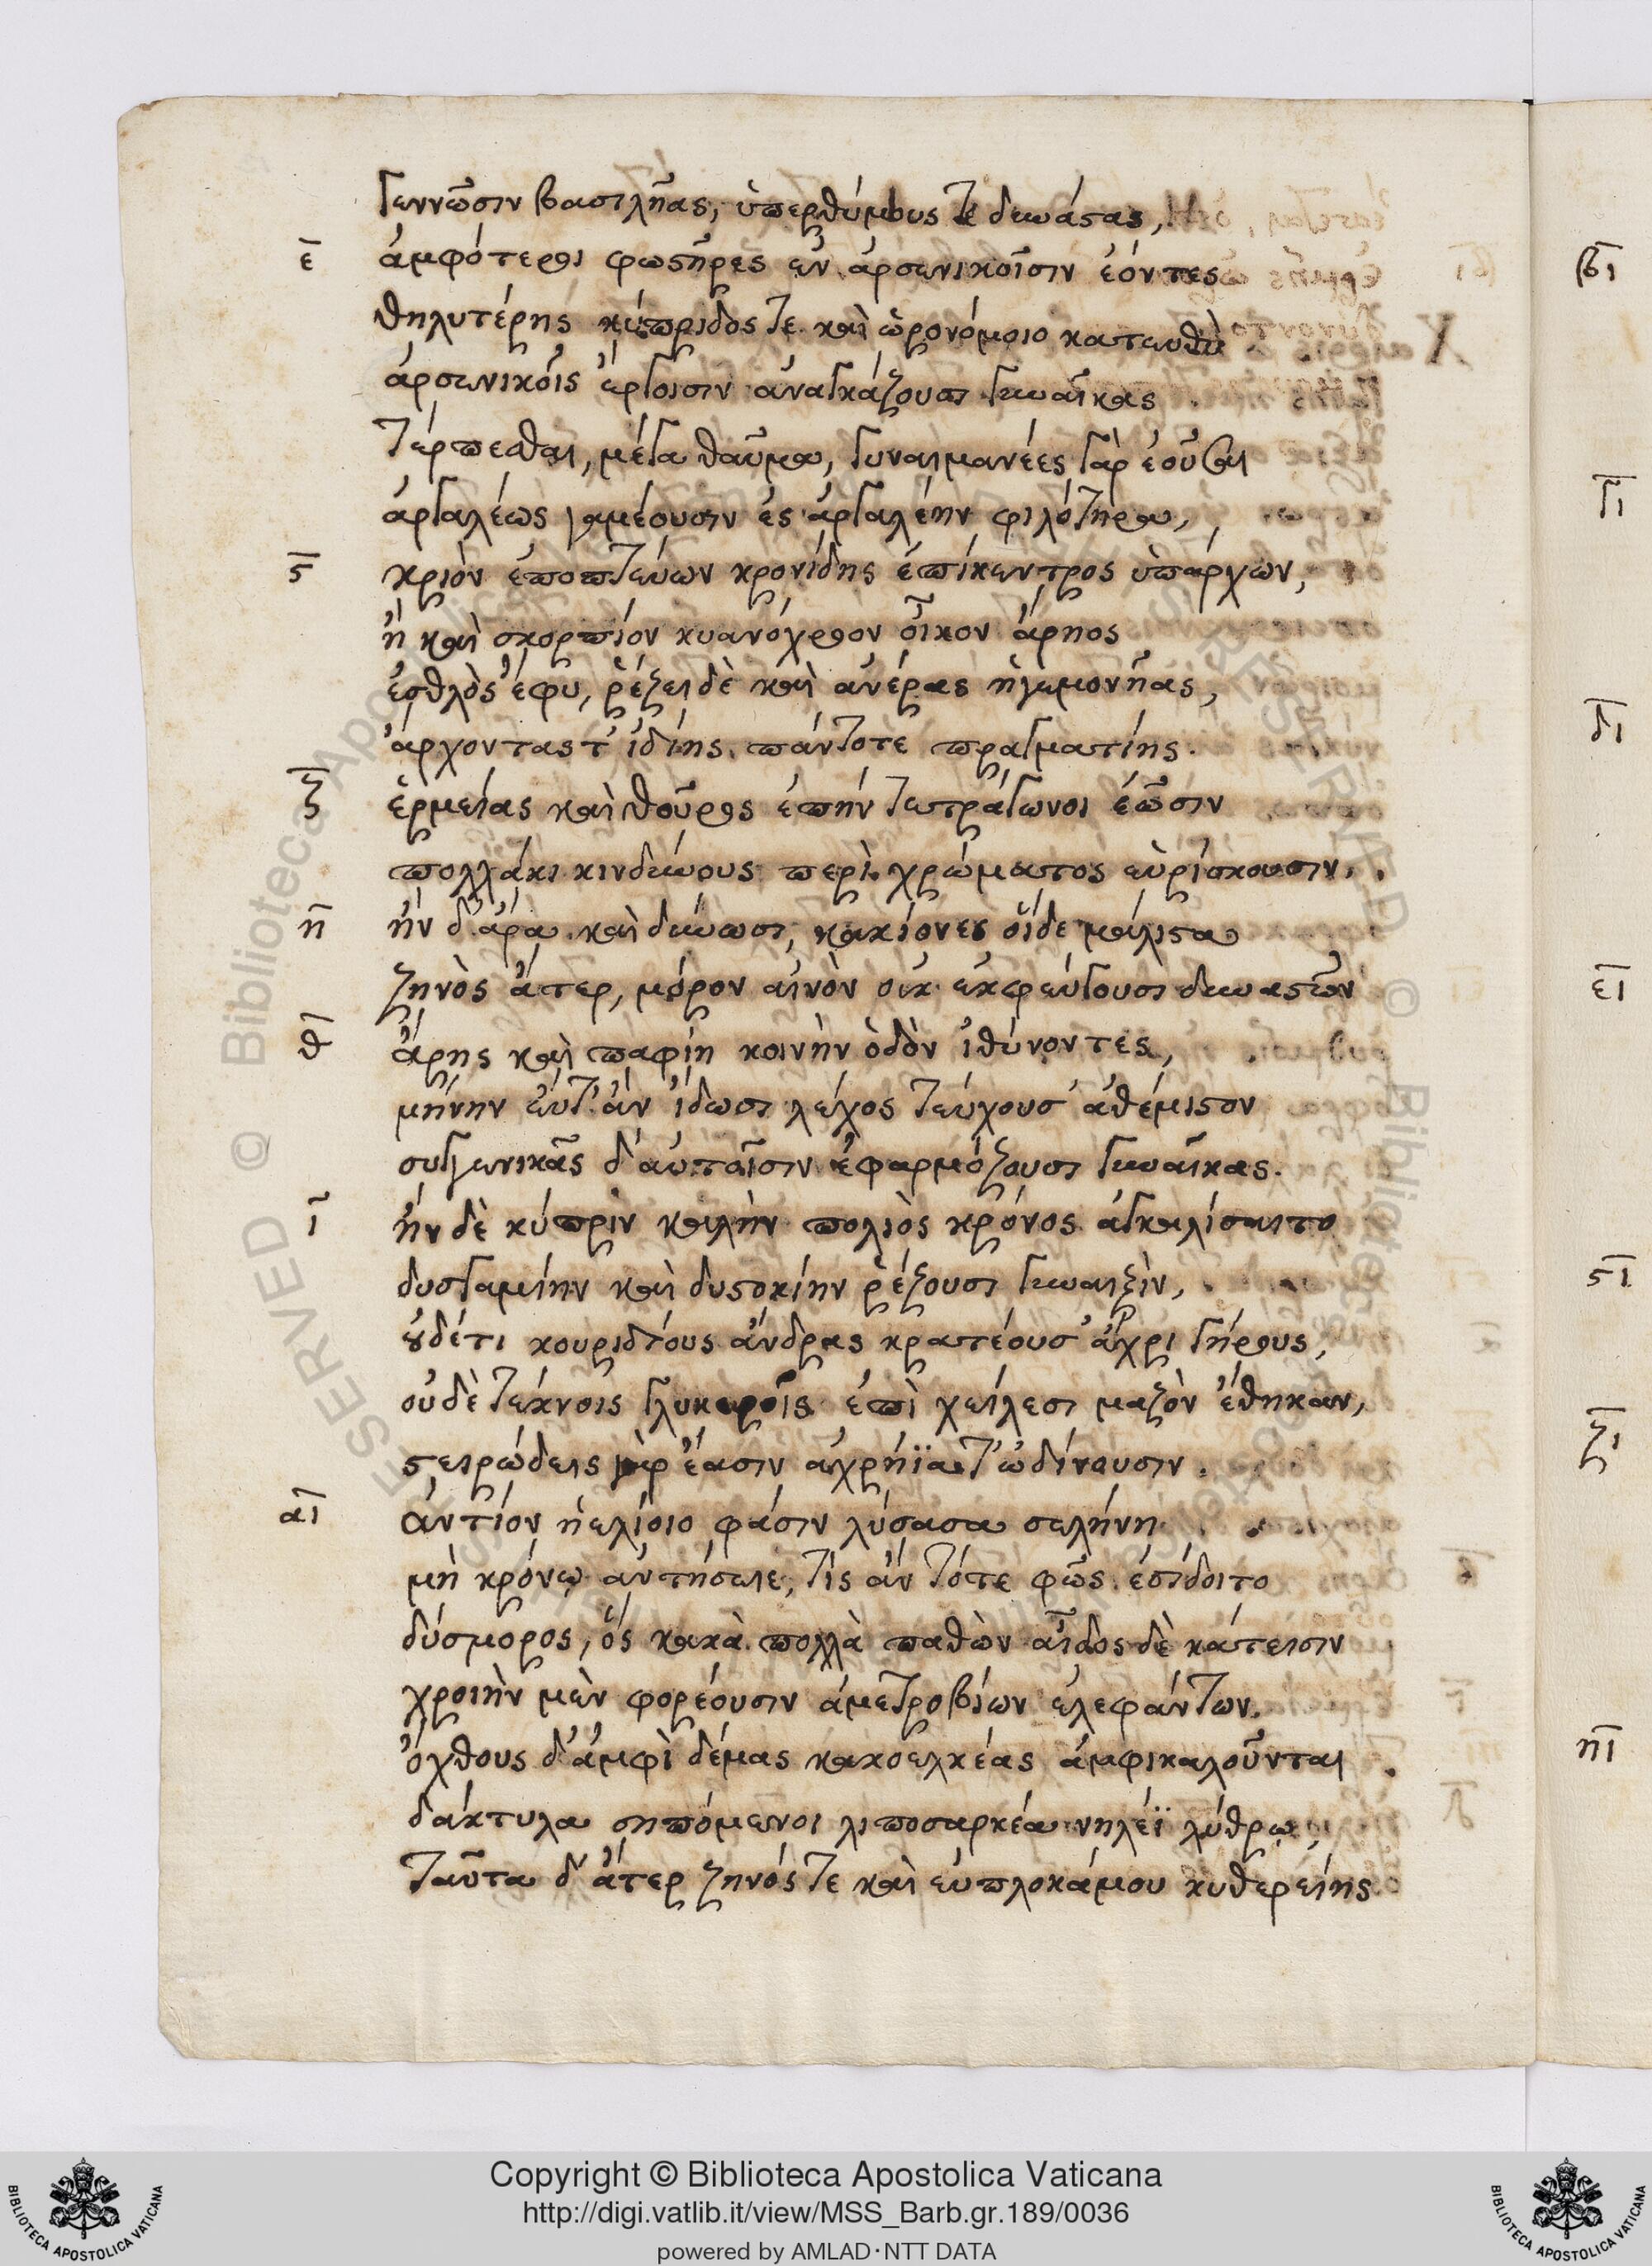 γεννῶσιν βασιλῆας, ὑπερθύμους τε δυνάστας,
ε ἀμφότεροι φωστῆρες ἐν ἀρσενικοῖσιν ἐόντες
θηλυτέρης κύπριδος τε καὶ ὡρονόμοιο κατευθὺ
ἀρσενικοῖς ἔργοισιν ἀναγκάζουσι γυναῖκας
τέρπεσθαι, μέγα θαῦμα, γυναιμανέες γὰρ ἐοῦσαι
ἀργαλέως γαμέουσιν ἐς ἀργαλέην φιλότητα,
ϛ κριὸν ἐποπτεύων κρονίδης ἐπίκεντρος ὑπάρχων,
ἢ καὶ σκορπίον κυανόχροον οἶκον ἄρηος
ἐσθλὸς ἔφυ, ῥέζει δὲ καὶ ἀνέρας ἡγεμονῆας,
ἄρχοντας τ' ἰδίης πάντοτε πραγματίης.
ζ ἑρμείας καὶ θοῦρος ἐπὴν τετράγωνοι ἐῶσιν
πολλάκι κινδύνους περὶ χρώματος εὑρίσκουσιν.
η ἢν δ' ἄρα καὶ δύνωσι, κακίονες οἵδε μάλιστα
ζηνὸς ἄτερ, μόρον αἰνὸν οὐκ ἐκφεύγουσι δυναστῶν
θ ἄρης καὶ παφίη κοινὴν ὁδὸν ἰθύνοντες,
μήνην εὖτ' ἂν ἴδωσι λέχος τεύχουσ' ἀθέμιστον
συγγενικᾶς δ' αὐταῖσιν ἐφαρμόζουσι γυναῖκας.
ι ἢν δὲ κύπριν καλὴν πολιὸς κρόνος ἀγκαλίσαιτο
δυσγαμίην καὶ δυστοκίην ῥέζουσι γυναιξὶν,
οὐδέτι κουριδίους ἄνδρας κρατέουσ' ἄχρι γήρους,
οὐδὲ τέκνοις γλυκεροῖς ἐπὶ χείλεσι μαζὸν ἔθηκαν,
στειρώδεις γὰρ ἔασιν ἀχρήϊα τ' ὠδίνουσιν.
αι ἀντίον ἠελίοιο φάσιν λύσασα σελήνη
μὴ κρόνῳ ἀντήσειε, τίς ἂν τότε φῶς ἐσίδοιτο
δύσμορος, ὃς κακὰ πολλὰ παθὼν ἄϊδος δὲ κάτεισιν
χροιὴν μὲν φορέουσιν ἀμετροβίων ἐλεφάντων.
ὄχθους δ' ἀμφὶ δέμας κακοελκέας ἀμφικαλοῦνται
δάκτυλα σηπόμενοι λιποσαρκέα νηλέϊ λύθρῳ,
ταῦτα δ' ἄτερ ζηνός τε καὶ εὐπλοκάμου κυθερείης
βι
γι
δι
ει
ϛι
ζι
ηι
Copyright © Biblioteca Apostolica Vaticana
http://digi.vatlib.it/view/MSS_Barb.gr.189/0036
powered by AMLAD·NTT DATA